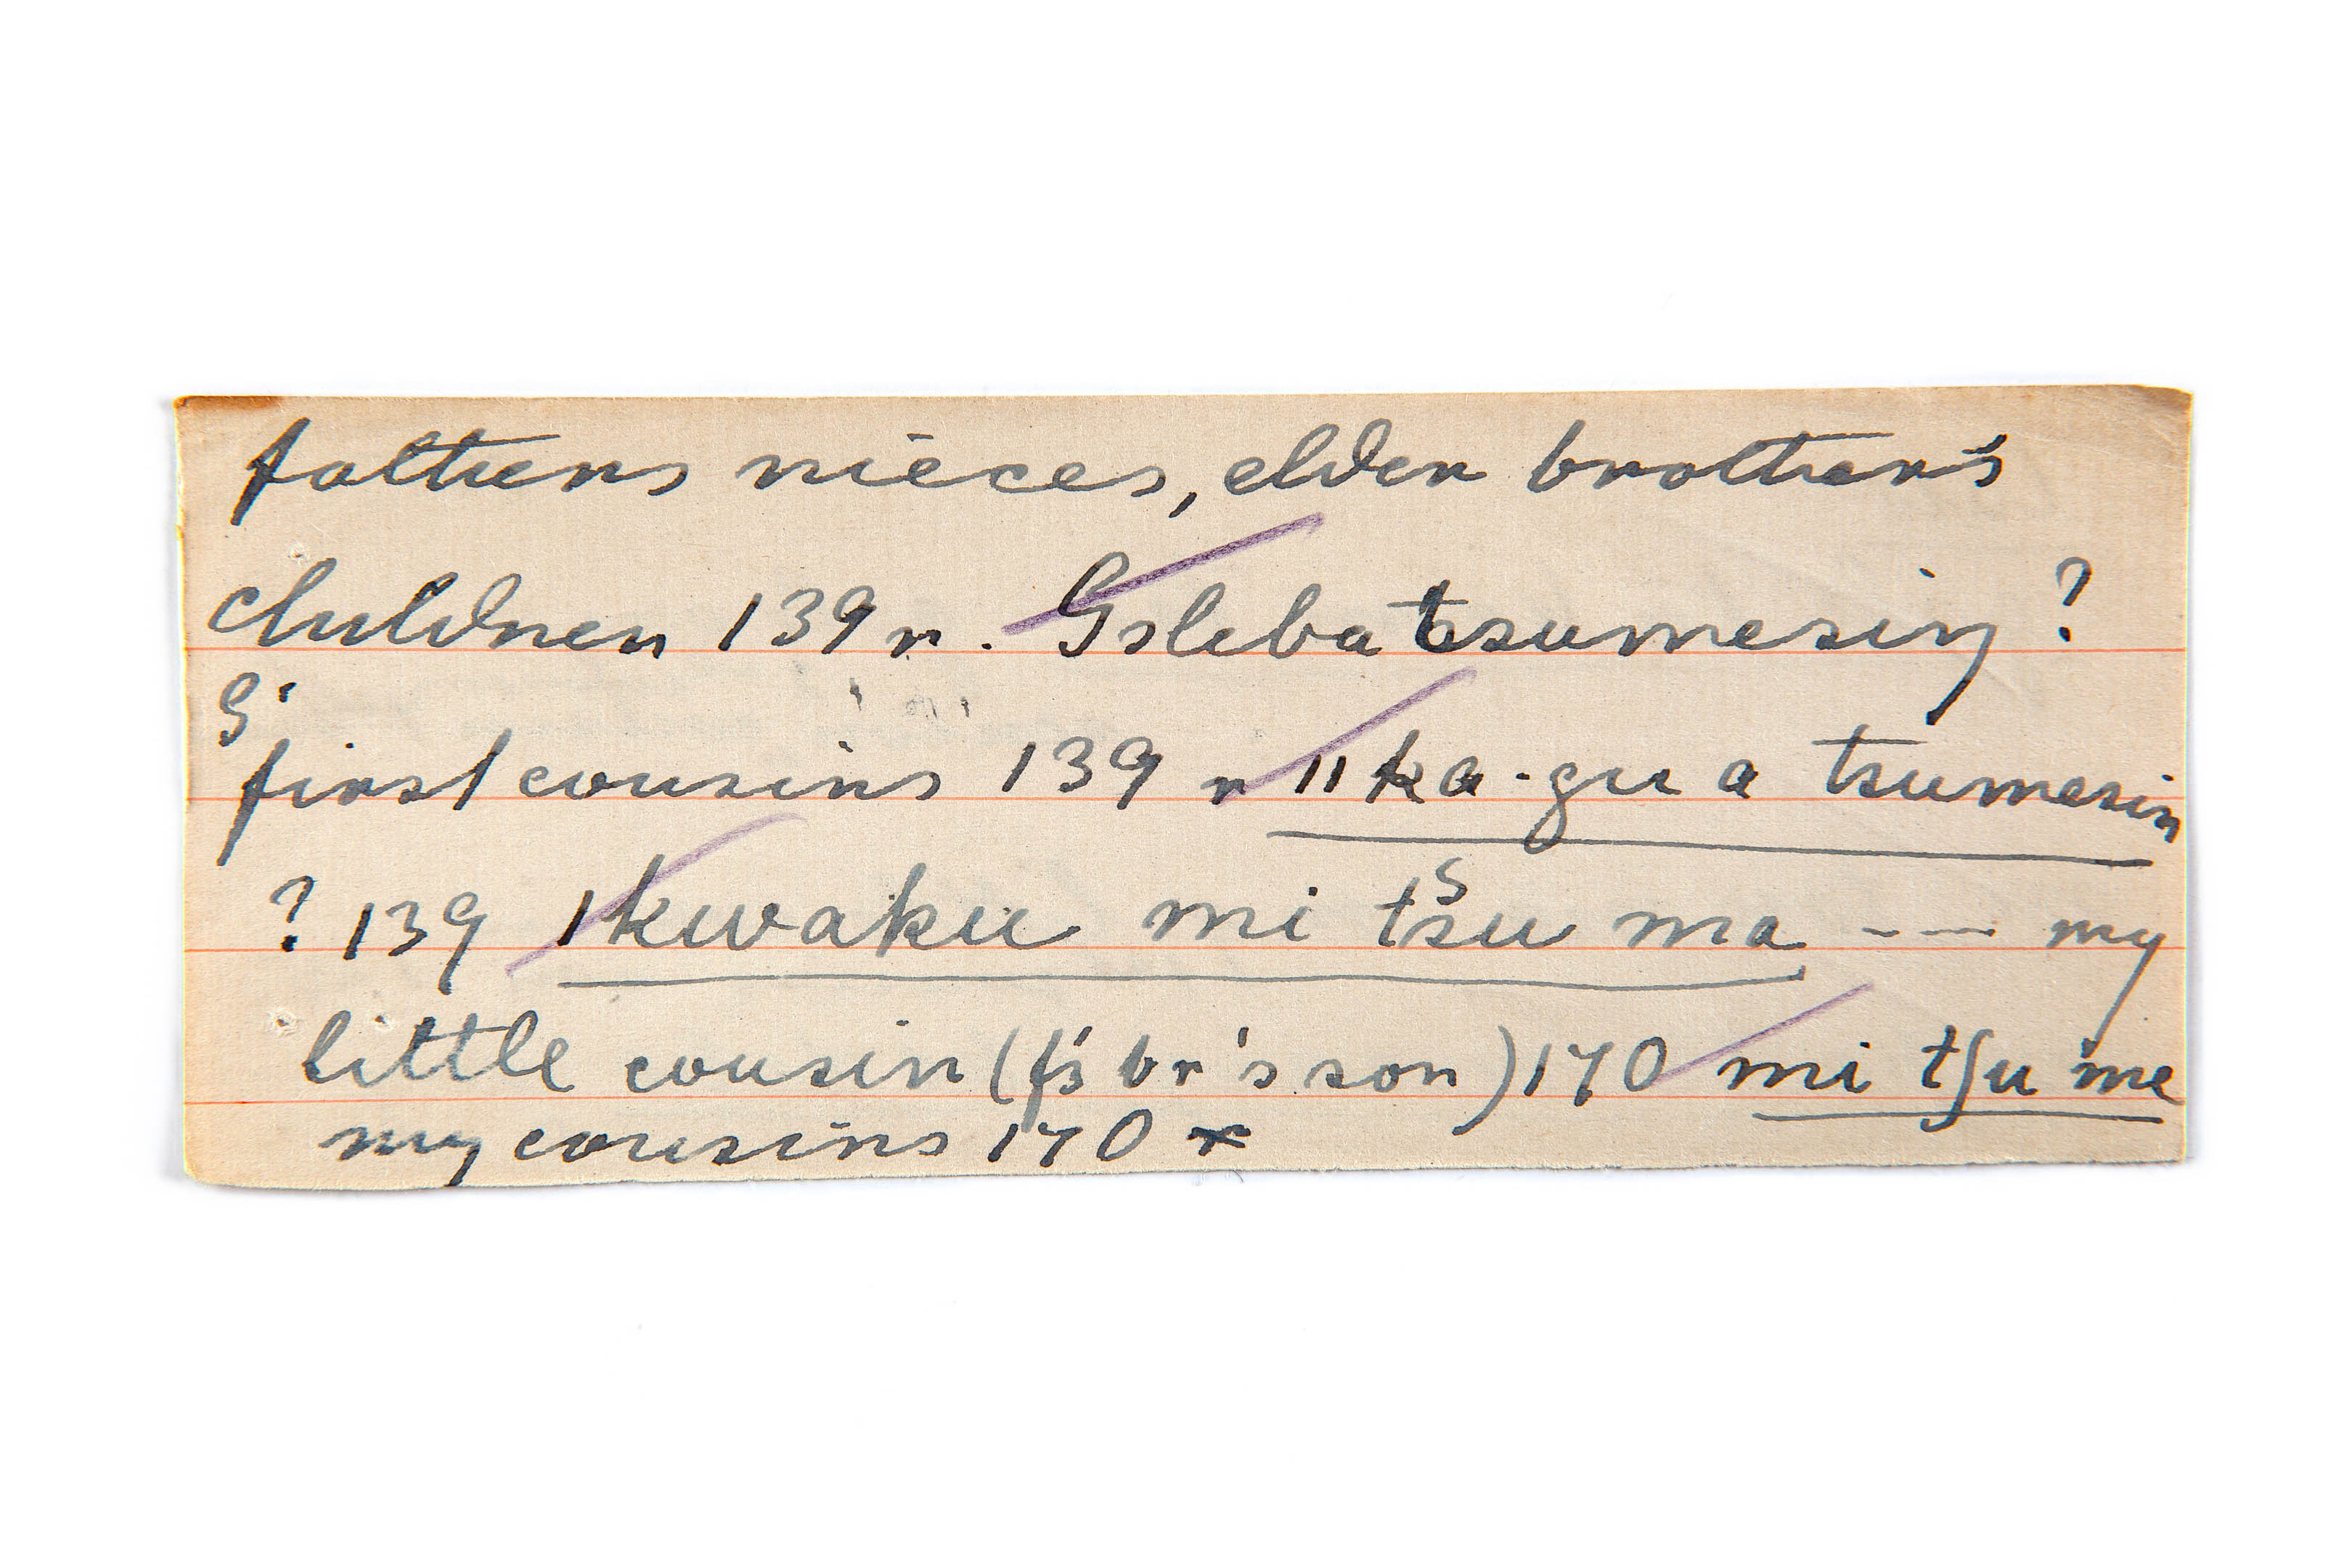 fathers nieces, elder brother's
children 139 r. Gslebatsumesiŋ ?
G'
first cousins 139 r ııka·gu a tsumesin
? 139 ıkwaku mi tšu ma --- my
little cousin (f's br's son) 170 mi tʃu me
my cousins 170 r